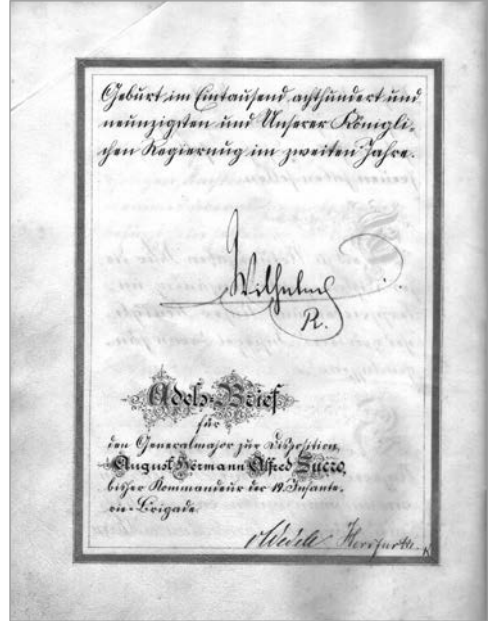 Geburt im Eintausend achthundert und
neunzigsten und Unserer Königli-
chen Regierung im zweiten Jahre.
Wilhelm
R.
Adels-Brief
für
den Generalmajor zur Disposition,
August Hermann Alfred Sucro,
bisher Kommandeur der 19. Infante-
rie-Brigade.
Wedel Herrfurth